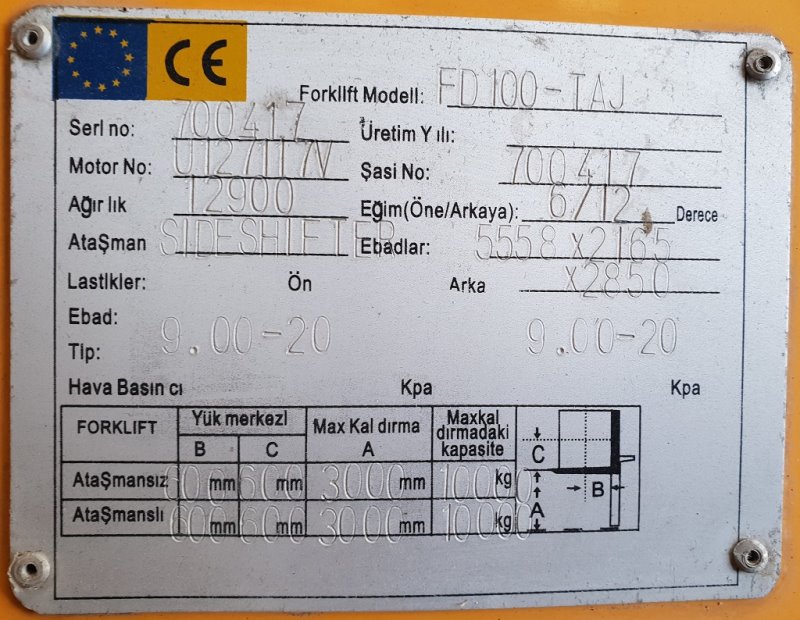 CE
Forklift Modeli: FD100-TAJ
Seri no: 700417 Üretim Yılı:
Motor No: U127117V Şasi No: 700417
Ağırlık 12900 Eğim(Öne/Arkaya): 6/12 Derece
AtaŞman SIDESHIFTER Ebadlar: 5558x2165
Lastikler: Ön Arka x2850
Ebad:
Tip: 9.00-20 9.00-20
Hava Basıncı Kpa Kpa
FORKLIFT Yük merkezi Max Kaldırma Maxkal
dırmadaki
B C A kapasite
AtaŞmansız 600 mm 600 mm 3000 mm 10000 kg
AtaŞmanslı 600 mm 600 mm 3000 mm 10000 kg
C
B
A